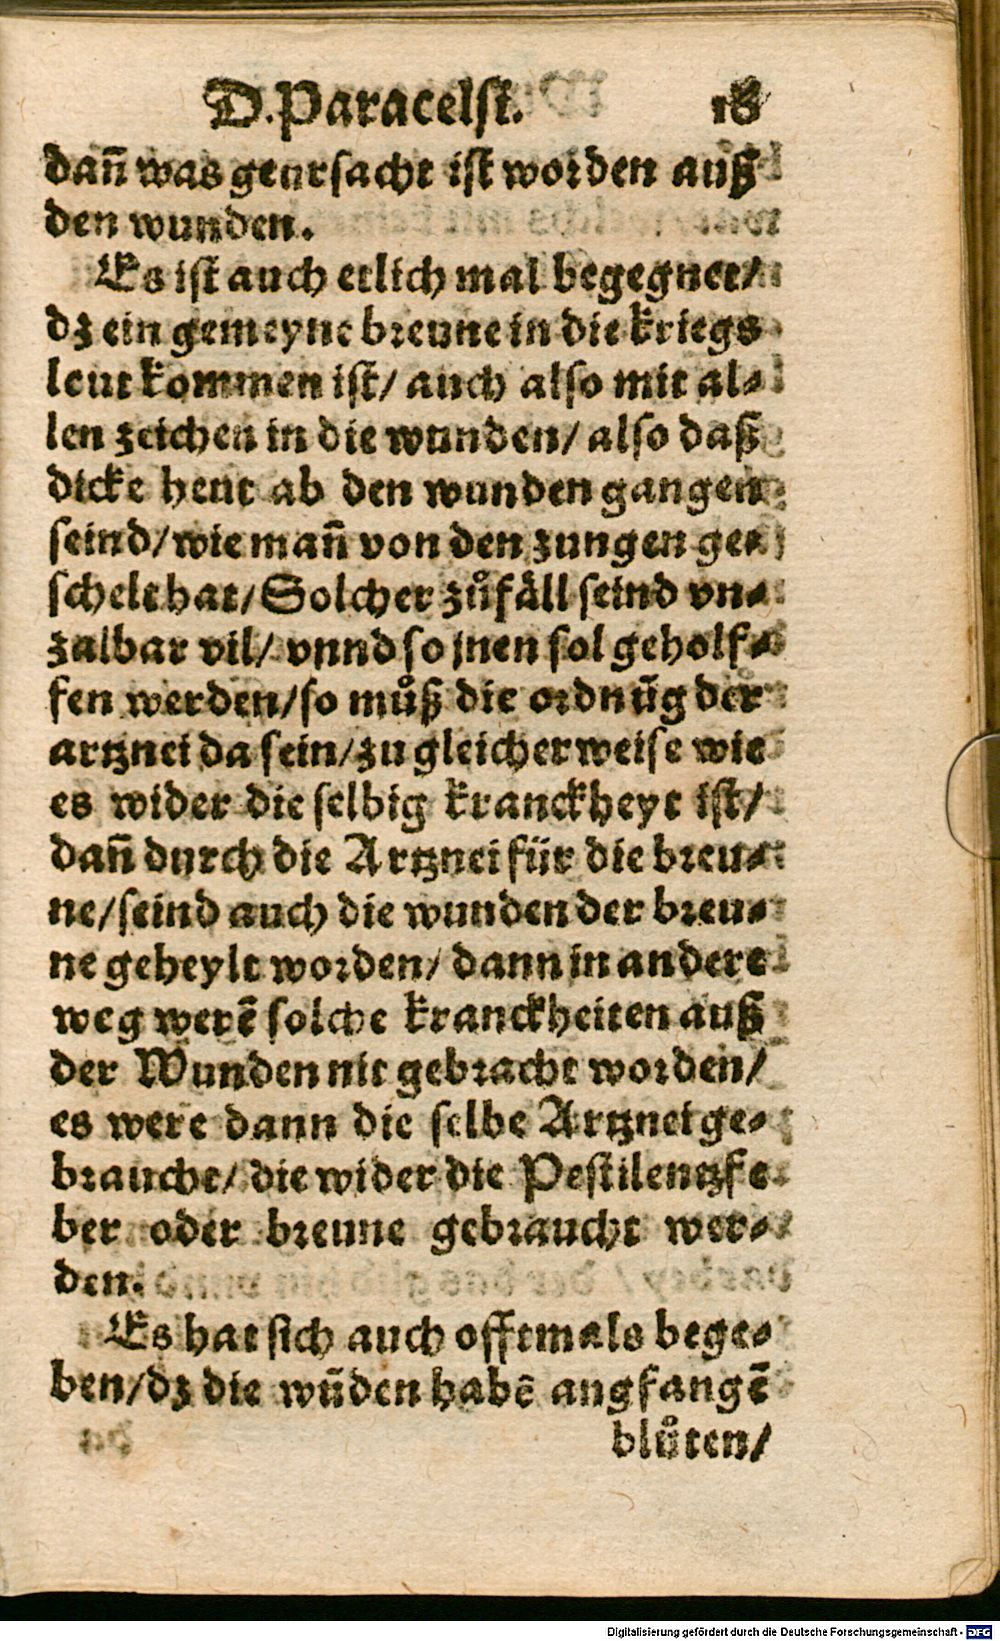 D. Paracelsi. 18
dañ was geursacht ist worden auß
den wunden.
Es ist auch etlich mal begegnet/
dz ein gemeyne breune in die kriegs
leut kommen ist/ auch also mit al⸗
len zeichen in die wunden/ also daß
dicke heut ab den wunden gangen
seind/ wie mañ von den zungen ge⸗
schelt hat/ Solcher zůfäll seind vn⸗
zalbar vil/ vnnd so jnen sol geholf⸗
fen werden/ so můß die ordnūg der
artznei da sein/ zu gleicher weise wie
es wider die selbig kranckheyt ist/
dañ durch die Artznei für die breu⸗
ne/ seind auch die wunden der breu⸗
ne geheylt worden/ dann in andere
weg werē solche kranckheiten auß
der Wunden nit gebracht worden/
es were dann die selbe Artznei ge⸗
braucht/ die wider die Pestilentzfe
ber oder breune gebraucht wer⸗
den.
Es hat sich auch offtmals bege⸗
ben/ dz die wūden habē angfangē
blůten/
Digitalisierung gefördert durch die Deutsche Forschungsgemeinschaft - DFG